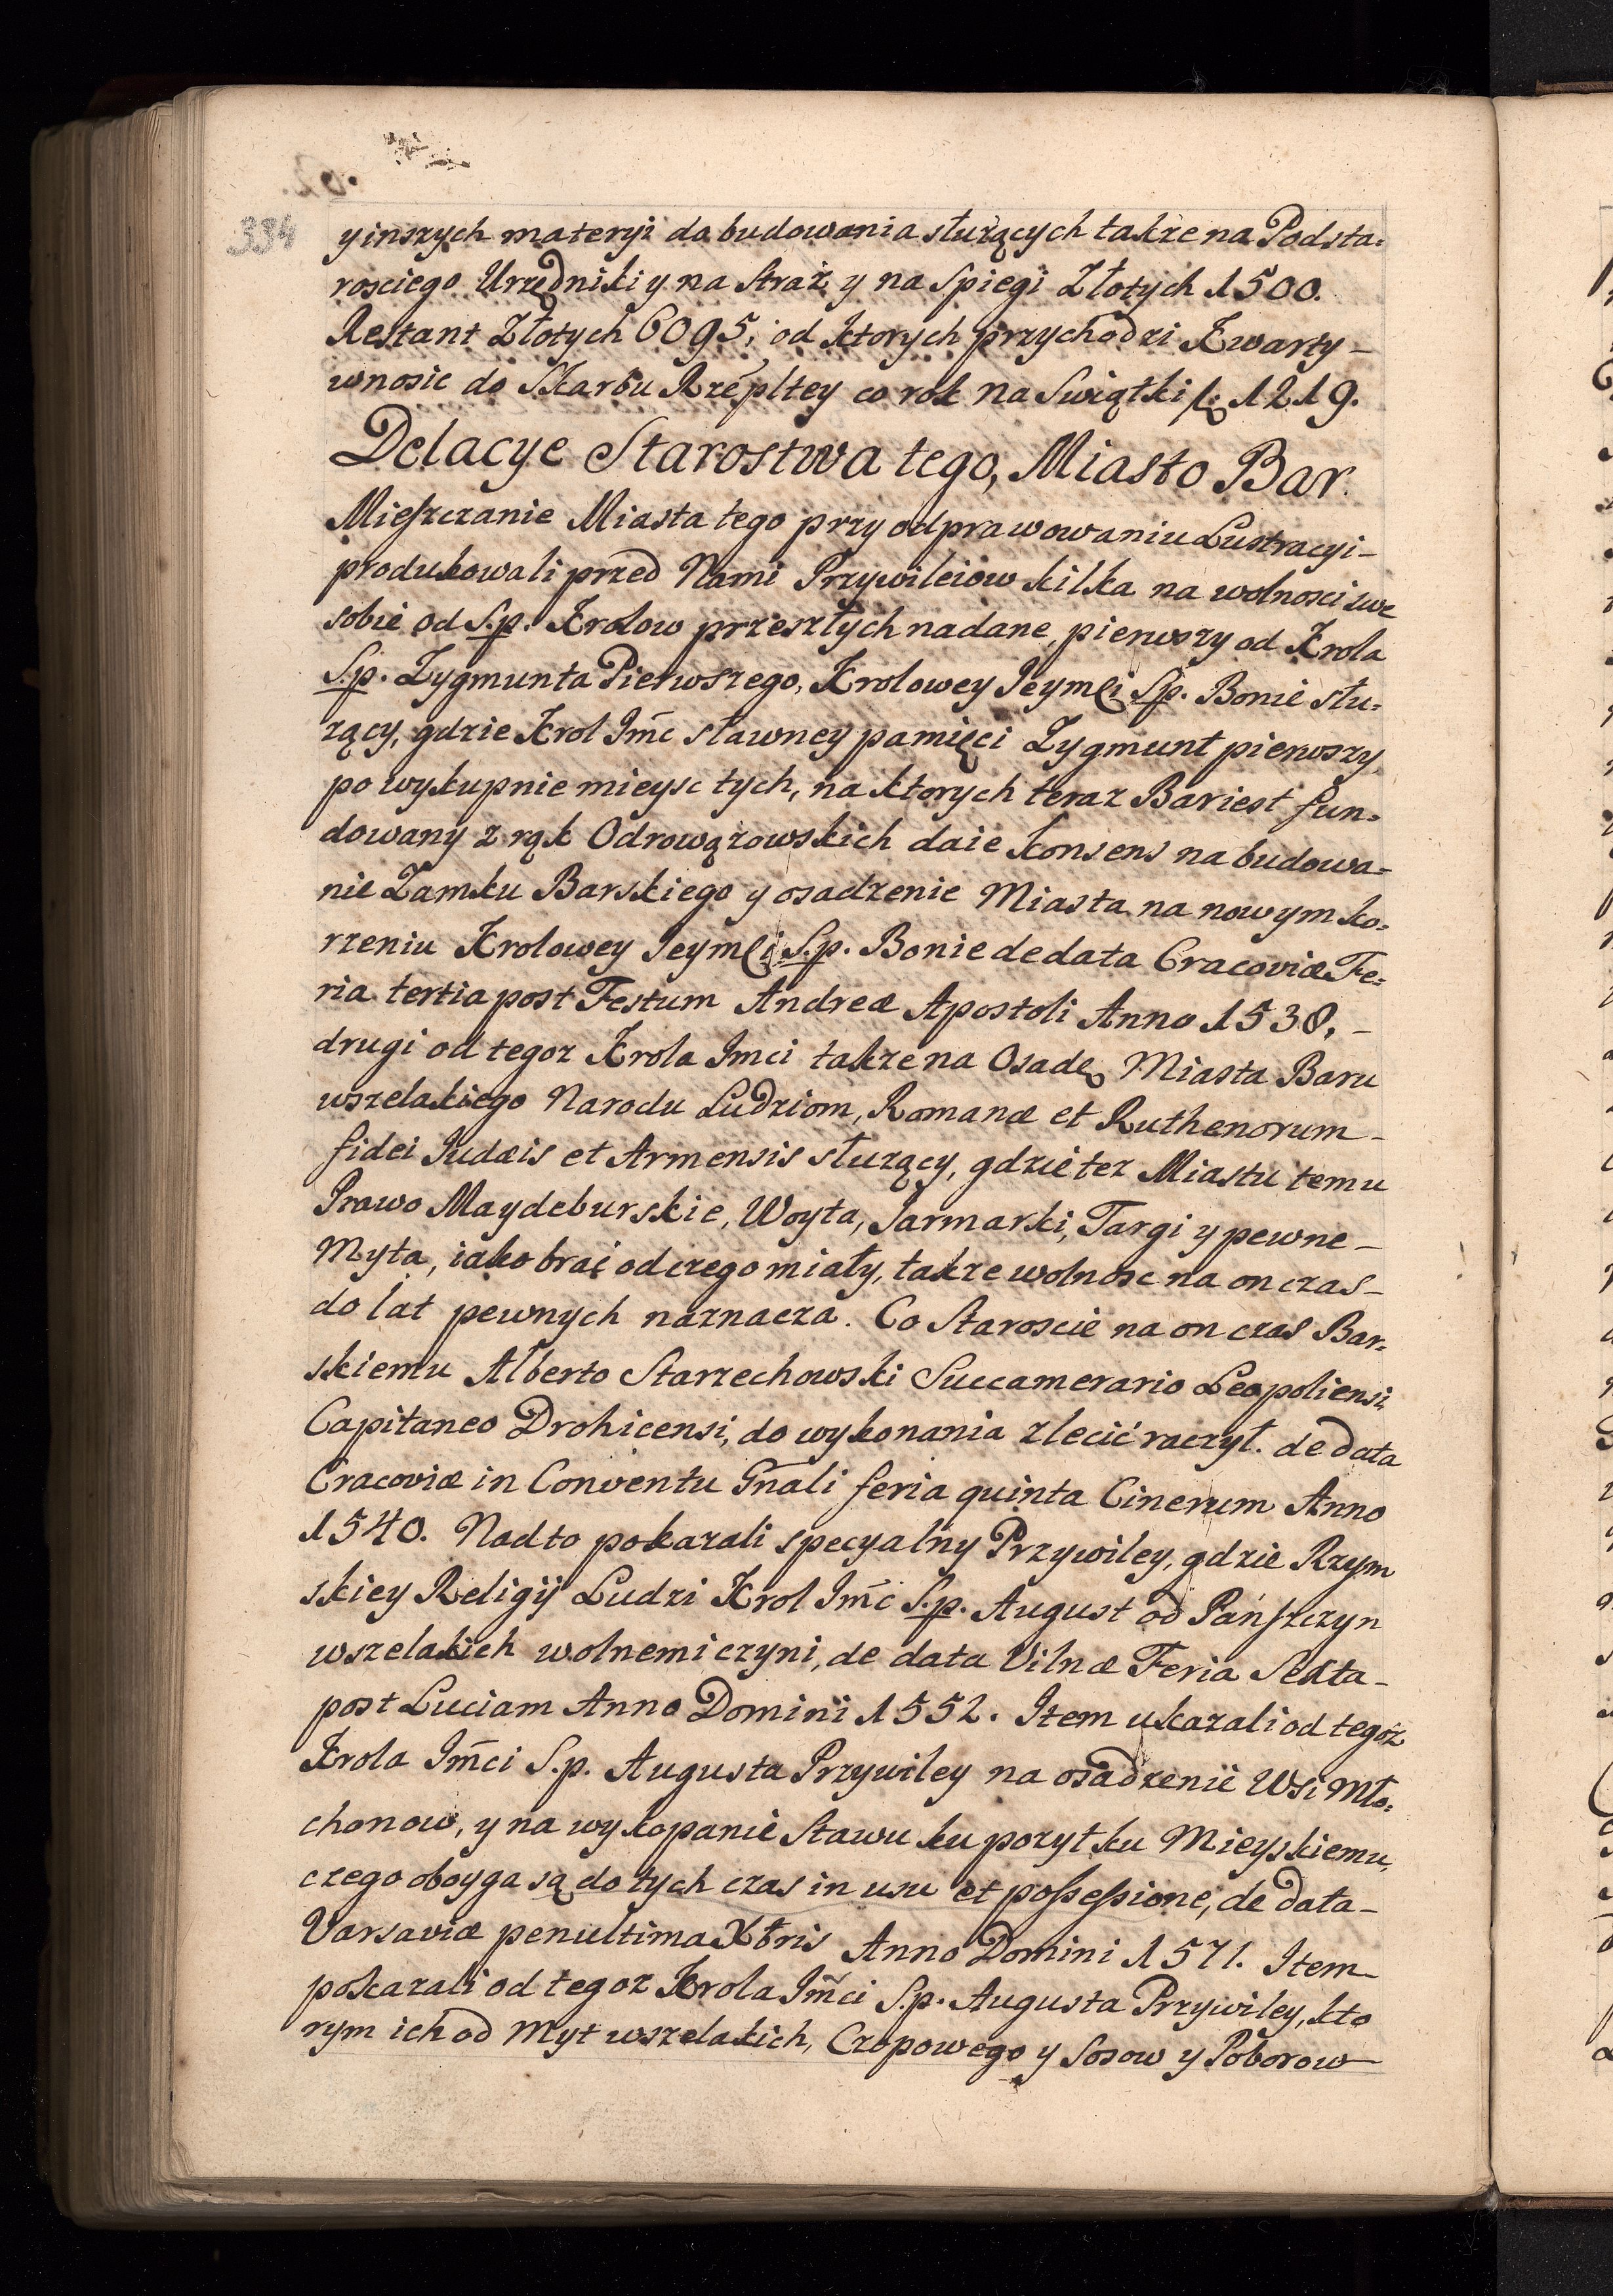 334
y inszych materyi do budowania służących także na Podsta=
rosciego Urzędniki y na Straż y na Spiegi Złotych 1500.
Restant Złotych 6095, od ktorych przychodzi Kwarty –
wnosic do Skarbu Rzepltey co rok na Swiątki fl. 1219.
Delacye Starostwa tego, Miasto Bar.
Mieszczanie Miasta tego przy odprawowaniu Lustracyi –
produkowali przed Nami Przywileiow kilka na wolnosci swe
sobie od S.p. Krolow przeszłych nadane, pierwszy od Krola
S.p. Zygmunta Pierwszego, Krolowey Jeymći S.p. Bonie słu=
żący, gdzie Krol Jmć sławney pamięci Zygmunt pierwszy
po wykupnie mieysc tych, na ktorych teraz Bar iest fun=
dowany z rąk Odrowązowskich daie konsens na budowa=
nie Zamku Barskiego y osadzenie Miasta na nowym ko=
rzeniu Krolowey Jeymći S.p. Bonie de data Cracoviæ Fe=
ria tertia post Festum Andreæ Apostoli Anno 1538. –
drugi od tegoz Krola Jmci także na Osadę Miasta Baru
wszelakiego Narodu Ludziom, Romanæ et Ruthenorum –
fidei Judæis et Armensis służący, gdzie tez Miastu temu
Prawo Maydeburskie, Woyta, Jarmarki, Targi y pewne –
Myta, iako brać od czego miały, także wolnosc na on czas –
do lat pewnych naznacza. Co Staroscie na on czas Bar=
skiemu Alberto Starzechowski Succamerario Leopoliensi,
Capitaneo Drohicensi, do wykonania zlecić raczył. de data
Cracoviæ in Conventu Gnali feria quinta Cinerum Anno
1540. Nadto pokazali specyalny Przywiley, gdzie Rzym
skiey Religij Ludzi Krol Jmć S.p. August od Pańszczyn
wszelakich wolnemi czyni, de data Vilnæ Feria Sexta –
post Luciam Anno Domini 1552. Item ukazali od tegoż
Krola Jmći S.p. Augusta Przywiley na osadzenie Wsi Mło=
chonow, y na wykopanie Stawu ku pozytku Mieyskiemu,
czego oboyga są do tych czas in usu et possessione, de data –
Varsaviæ penultima Xbris Anno Domini 1571. Item –
pokazali od tegoz Krola Jmći S.p. Augusta Przywiley, kto
rym ich od Myt wszelakich, Czopowego y Sosow y Poborow –